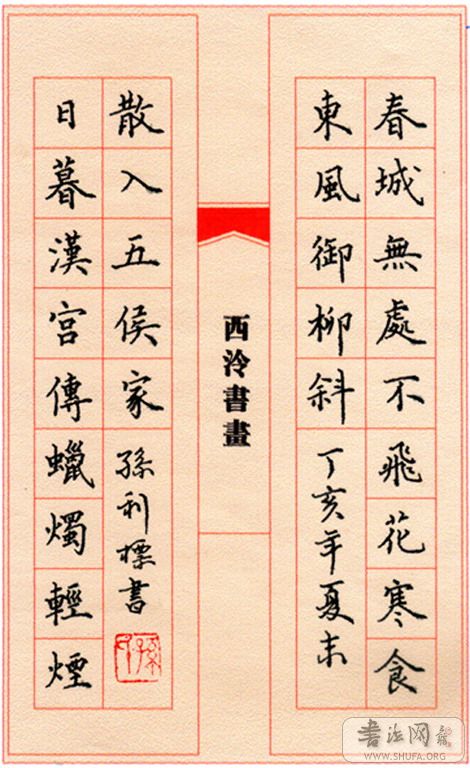 春城無處不飛花寒食
東風御柳斜 丁亥年夏末
西泠書畫
日暮漢宮傳蠟燭輕煙
散入五侯家 孫利標書
书法网
WWW.SHUFA.ORG